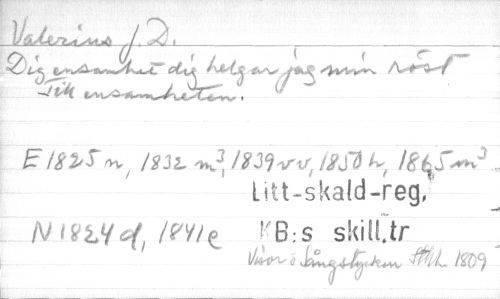 Valerius J. D.
Dig ensamhet dig helgar jag min röst
Till ensamheten.
E 1825 n, 1832 m³, 1839 v v, 1850 h, 1865 m³
Litt-skald-reg.
N 1824 d, 1841 e KB:s skill.tr
Visor o Sångstycken Sthlm 1809